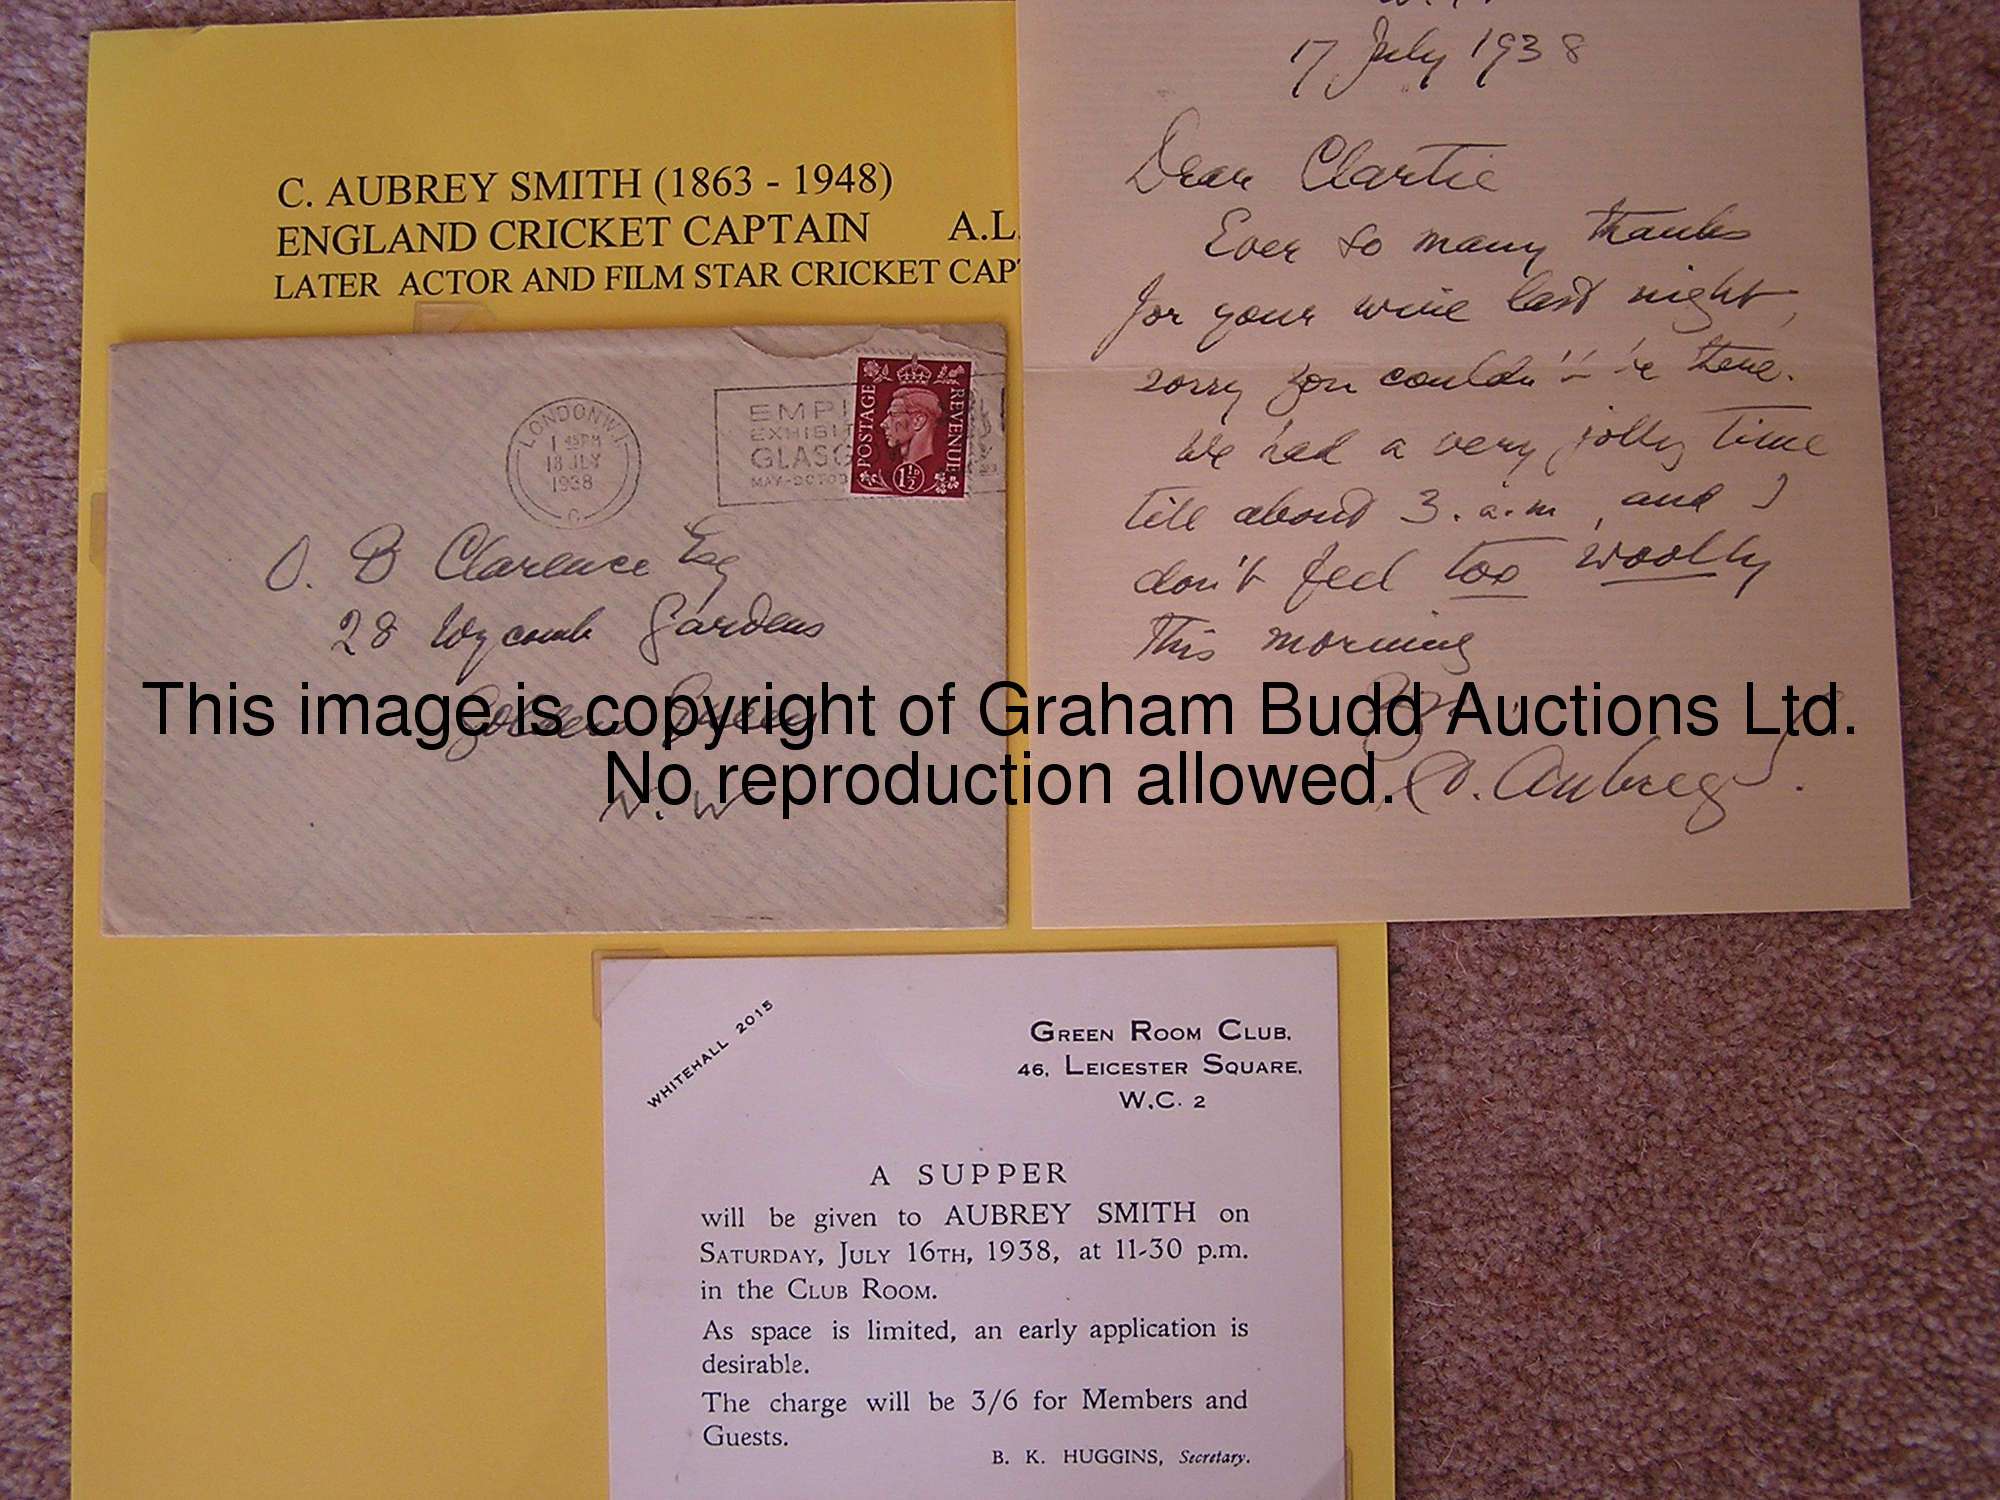 C. AUBREY SMITH (1863 - 1948)
ENGLAND CRICKET CAPTAIN A.L.
LATER ACTOR AND FILM STAR CRICKET CAP
LONDON W.1
1 45PM
18 JLY
1938
C
EMPI
EXHIBIT
GLASG
MAY-OCTOB
POSTAGE
REVENUE
1½D
O. B Clarence Esq
28 Wycomb Gardens
Golders Green
N. W
17 July 1938
Dear Clartie
Ever so many thanks
for your wine last night,
sorry you couldn't be there.
We had a very jolly time
till about 3. a.m, and I
don't feel too woolly
this morning
C. Aubrey S.
This image is copyright of Graham Budd Auctions Ltd.
No reproduction allowed.
WHITEHALL 2015
GREEN ROOM CLUB,
46, LEICESTER SQUARE,
W.C. 2
A SUPPER
will be given to AUBREY SMITH on
SATURDAY, JULY 16TH, 1938, at 11-30 p.m.
in the CLUB ROOM.
As space is limited, an early application is
desirable.
The charge will be 3/6 for Members and
Guests.
B. K. HUGGINS, Secretary.